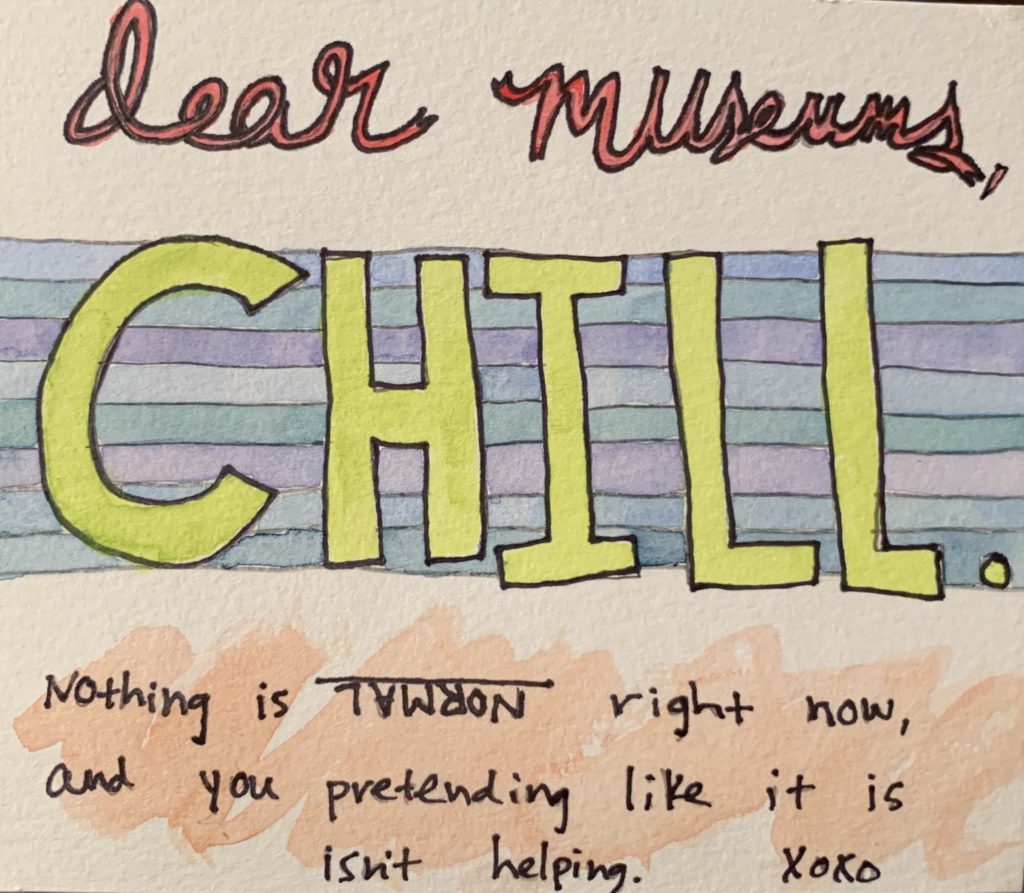 dear museums,
CHILL.
Nothing is NORMAL right now,
and you pretending like it is
isn't helping. XOXO